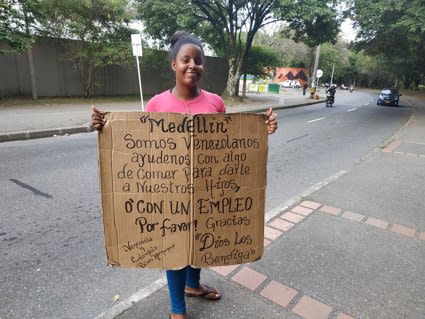 "Medellin"
Somos Venezolanos
ayudenos con algo
de comer Para darle
a Nuestros Hijos,
O CON UN EMPLEO
Por favor! Gracias
"Dios Los
Bendiga"
Venezuela
y
Colombia